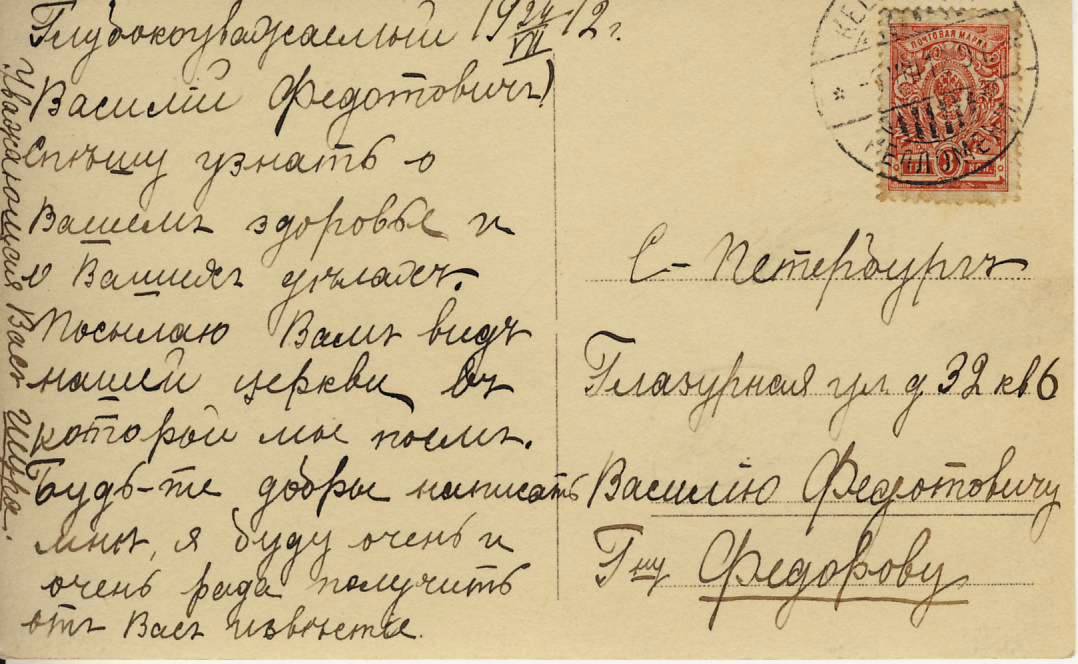 Глубокоуважаемый 19 24/VII 12 г.
Василій Федотовичъ!
Спѣшу узнать о
Вашемъ здоровье и
о Вашихъ дѣлахъ.
Посылаю Вамъ видъ
нашей церкви въ
которой мы поемъ.
Будь-те добры написать
мнѣ, я буду очень и
очень рада получить
отъ Васъ извѣстіе.
Уважающая Васъ
ПОЧТОВАЯ МАРКА
С-Петербургъ
Глазурная ул д 32 кв 6
Василію Федотовичу
Гну Федорову